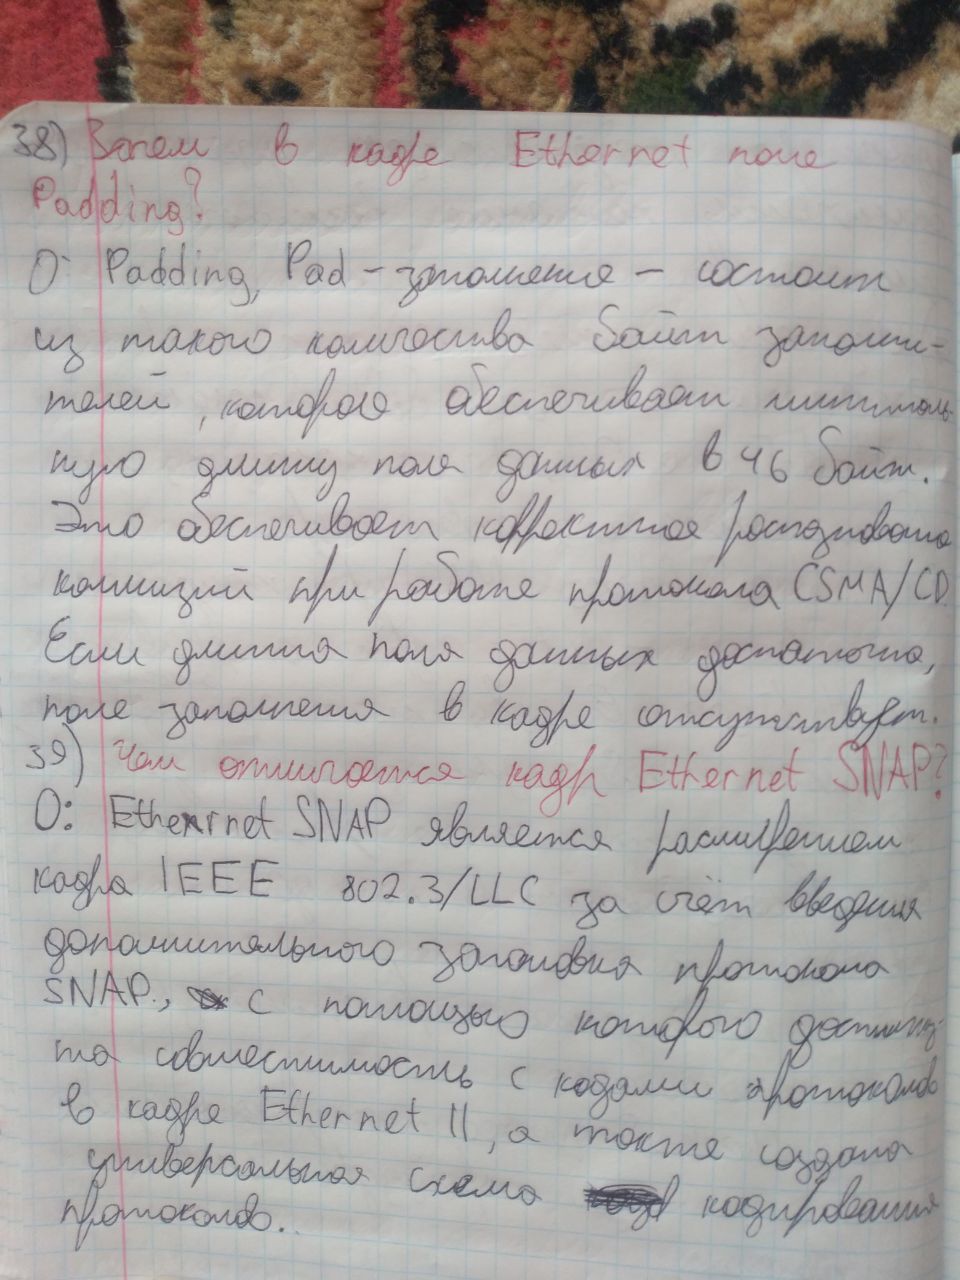 38) Зачем в кадре Ethernet поле
Padding?
О: Padding, Pad - заполнения - состоит
из такого количества байт заполни-
телей, которое обеспечивает минималь-
ную длину поля данных в 46 байт.
Это обеспечивает корректное распознавание
коллизий при работе протокола CSMA/CD.
Если длинна поля данных достаточна,
поле заполнения в кадре отсутствует.
39) Чем отличается кадр Ethernet SNAP?
О: Ethernet SNAP является расширением
кадра IEEE 802.3/LLC за счёт введения
дополнительного заголовка протокола
SNAP., с помощью которого достигну-
та совместимость с кодами протоколов
в кадре Ethernet II, а также создана
универсальная схема кодирования
протоколов..